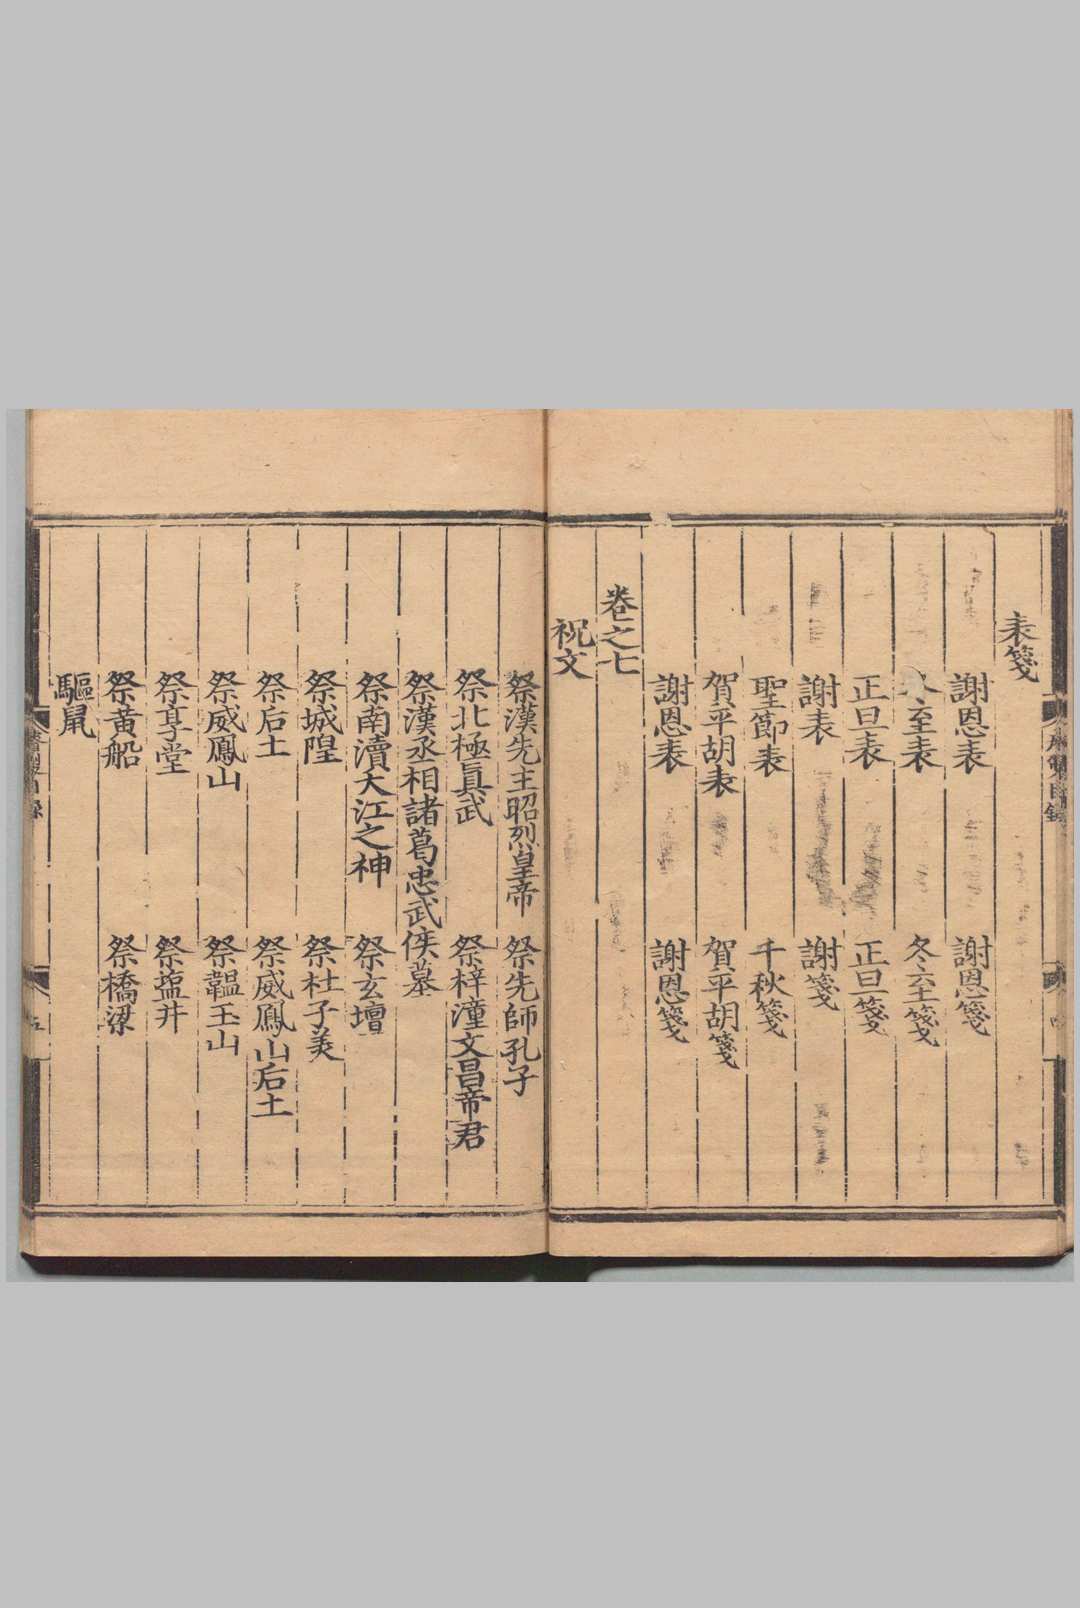 表箋
謝恩表 謝恩箋
冬至表 冬至箋
正旦表 正旦箋
謝表 謝箋
聖節表 千秋箋
賀平胡表 賀平胡箋
謝恩表 謝恩箋
卷之七
祝文
祭漢先主昭烈皇帝 祭先師孔子
祭北極眞武 祭梓潼文昌帝君
祭漢丞相諸葛忠武侯墓
祭南瀆大江之神 祭玄壇
祭城隍 祭杜子美
祭后土 祭威鳳山后土
祭威鳳山 祭韞玉山
祭享堂 祭塩井
祭黃船 祭橋梁
驅鼠
目錄
五